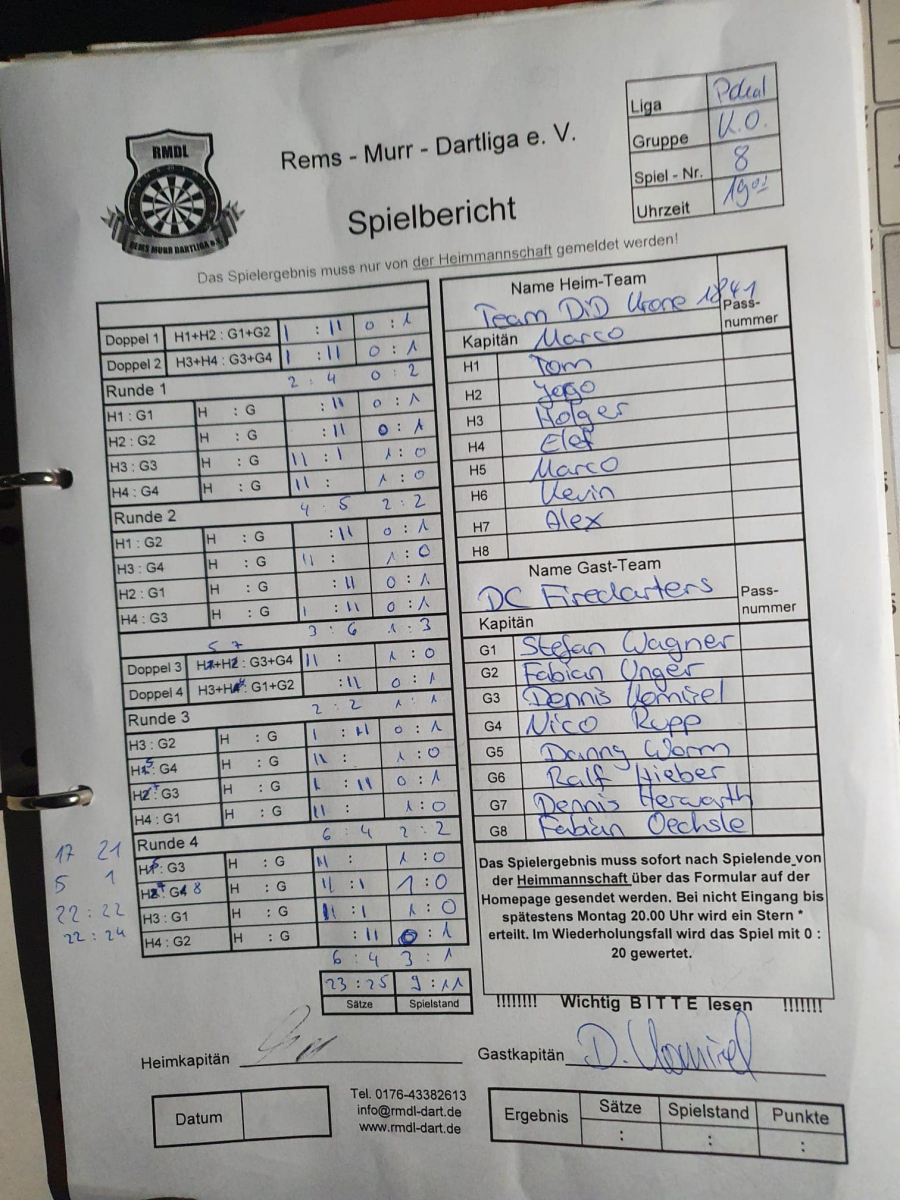 Liga Pokal
Gruppe K.O.
Spiel - Nr. 8
Uhrzeit 19⁰⁰
RMDL
REMS MURR DARTLIGA e.V.
Rems - Murr - Dartliga e. V.
Spielbericht
Das Spielergebnis muss nur von der Heimmannschaft gemeldet werden!
Doppel 1 H1+H2 : G1+G2 I : II 0 : 1
Doppel 2 H3+H4 : G3+G4 I : II 0 : 1
Runde 1 2 : 4 0 : 2
H1 : G1 H : G : II 0 : 1
H2 : G2 H : G : II 0 : 1
H3 : G3 H : G II : I 1 : 0
H4 : G4 H : G II : 1 : 0
Runde 2 4 5 2 : 2
H1 : G2 H : G : II 0 : 1
H3 : G4 H : G II : 1 : 0
H2 : G1 H : G : II 0 : 1
H4 : G3 H : G I : II 0 : 1
3 : 6 1 : 3
5 7
Doppel 3 H1+H2 : G3+G4 II : 1 : 0
Doppel 4 H3+H4 : G1+G2 : II 0 : 1
Runde 3 2 : 2 1 : 1
H3 : G2 H : G I : II 0 : 1
H5 : G4 H : G II : 1 : 0
H27 : G3 H : G I : II 0 : 1
H4 : G1 H : G II : 1 : 0
Runde 4 6 : 4 2 : 2
H15 : G3 H : G II : 1 : 0
H27 : G4 8 H : G II : I 1 : 0
H3 : G1 H : G II : I 1 : 0
H4 : G2 H : G : II 0 : 1
6 : 4 3 : 1
23 : 25 9 : 11
Sätze Spielstand
17 21
5 1
22 : 22
22 : 24
Name Heim-Team
Team DiD Krone 1841
Pass-
nummer
Kapitän Marco
H1 Tom
H2 Jogo
H3 Holger
H4 Elef
H5 Marco
H6 Kevin
H7 Alex
H8
Name Gast-Team
DC Firedarters
Pass-
nummer
Kapitän
G1 Stefan Wagner
G2 Fabian Unger
G3 Dennis Komirel
G4 Nico Rupp
G5 Danny Worm
G6 Ralf Hieber
G7 Dennis Herwarth
G8 Fabian Oechsle
Das Spielergebnis muss sofort nach Spielende von
der Heimmannschaft über das Formular auf der
Homepage gesendet werden. Bei nicht Eingang bis
spätestens Montag 20.00 Uhr wird ein Stern *
erteilt. Im Wiederholungsfall wird das Spiel mit 0 :
20 gewertet.
!!!!!!!! Wichtig B I T T E lesen !!!!!!!
Heimkapitän
Gastkapitän D. Komirel
Datum
Tel. 0176-43382613
info@rmdl-dart.de
www.rmdl-dart.de
Ergebnis Sätze Spielstand Punkte
: : :